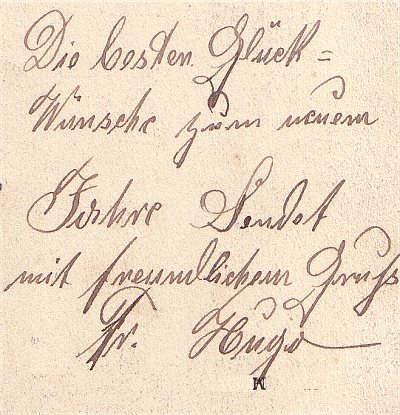 Die besten Glück=
Wünsche zum neuem
Jahre Sendet
mit freundlichem Gruß
Fr. Hugo
N